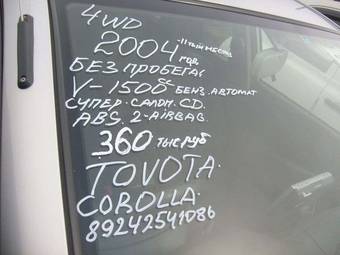 4WD
2004 -11тый месяц
год
БЕЗ ПРОБЕГА
V-1500 бс БЕНЗ. АВТОМАТ
СУПЕР. САЛОН. CD.
ABS. 2-AIRBAG.
360 ТЫС РУБ
TOYOTA.
COROLLA.
89242541086